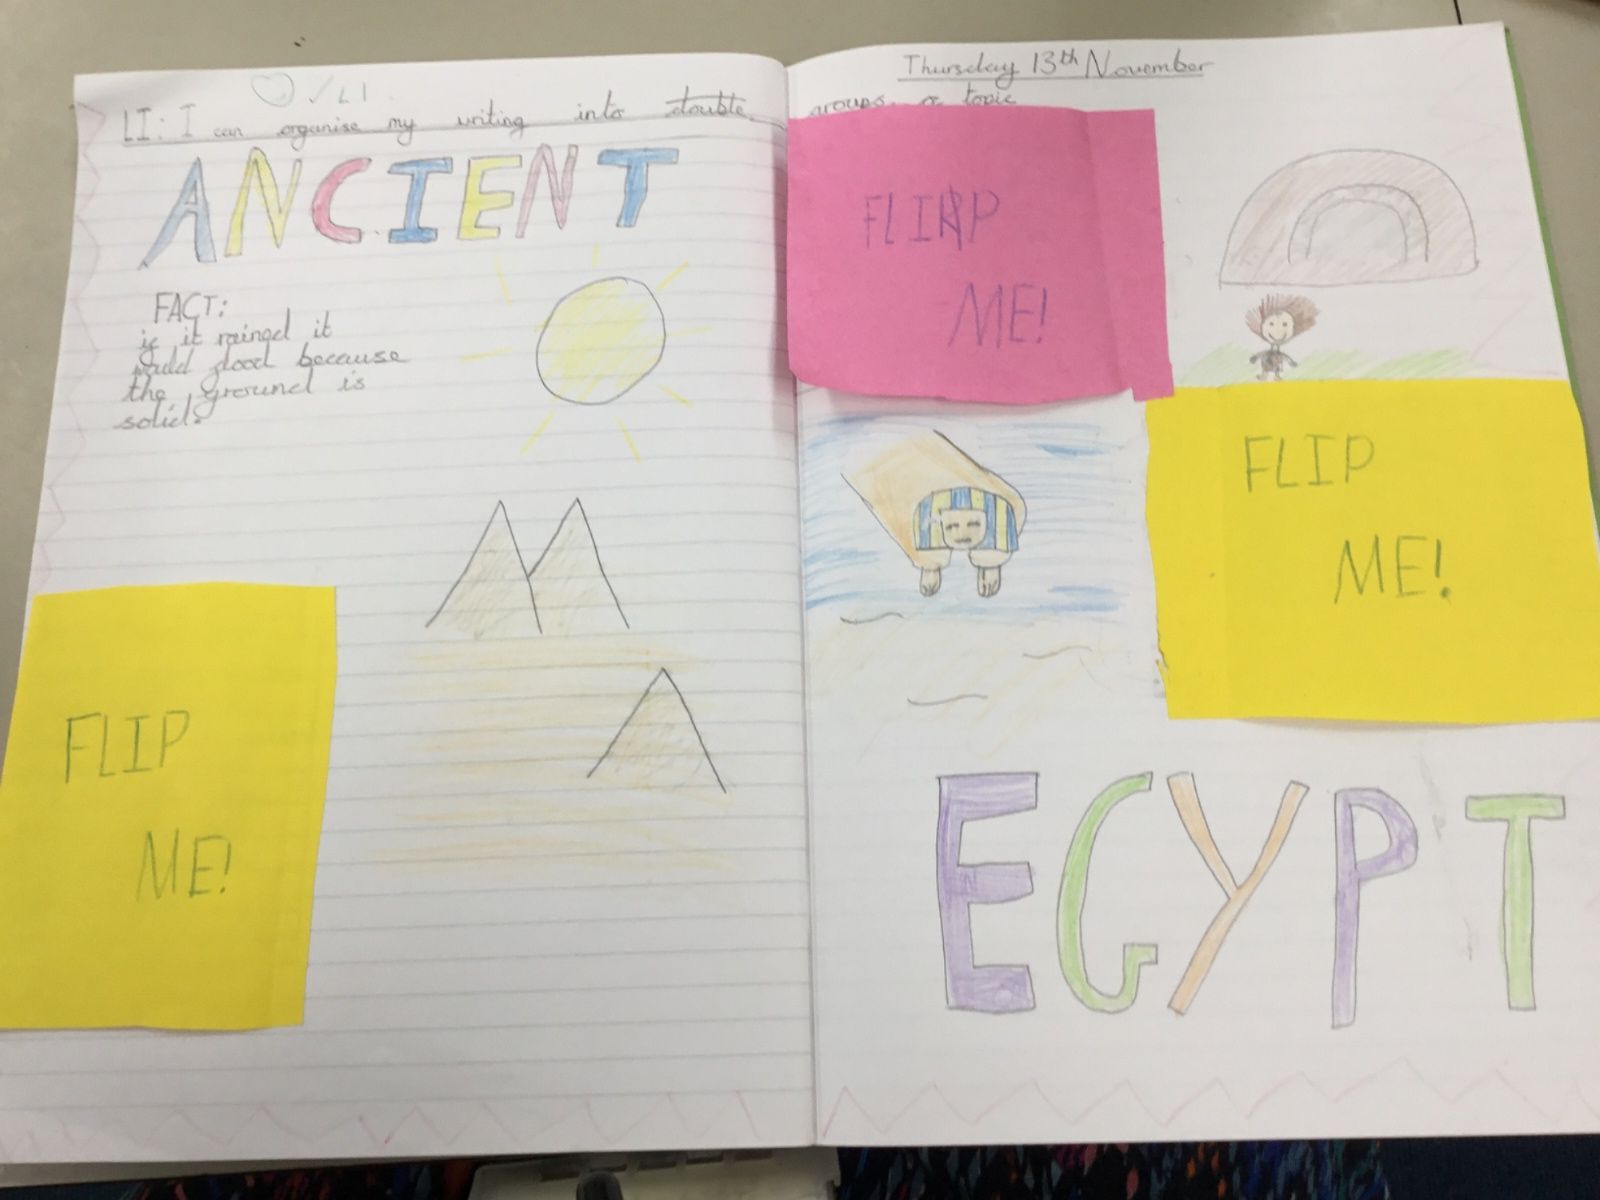 ✓ LI
Thursday 13th November
LI: I can organise my writing into double groups. a topic
ANCIENT
FACT:
if it rained it
would flood because
the ground is
solid.
FLIP
ME!
FLIP
ME!
FLIP
ME!
EGYPT